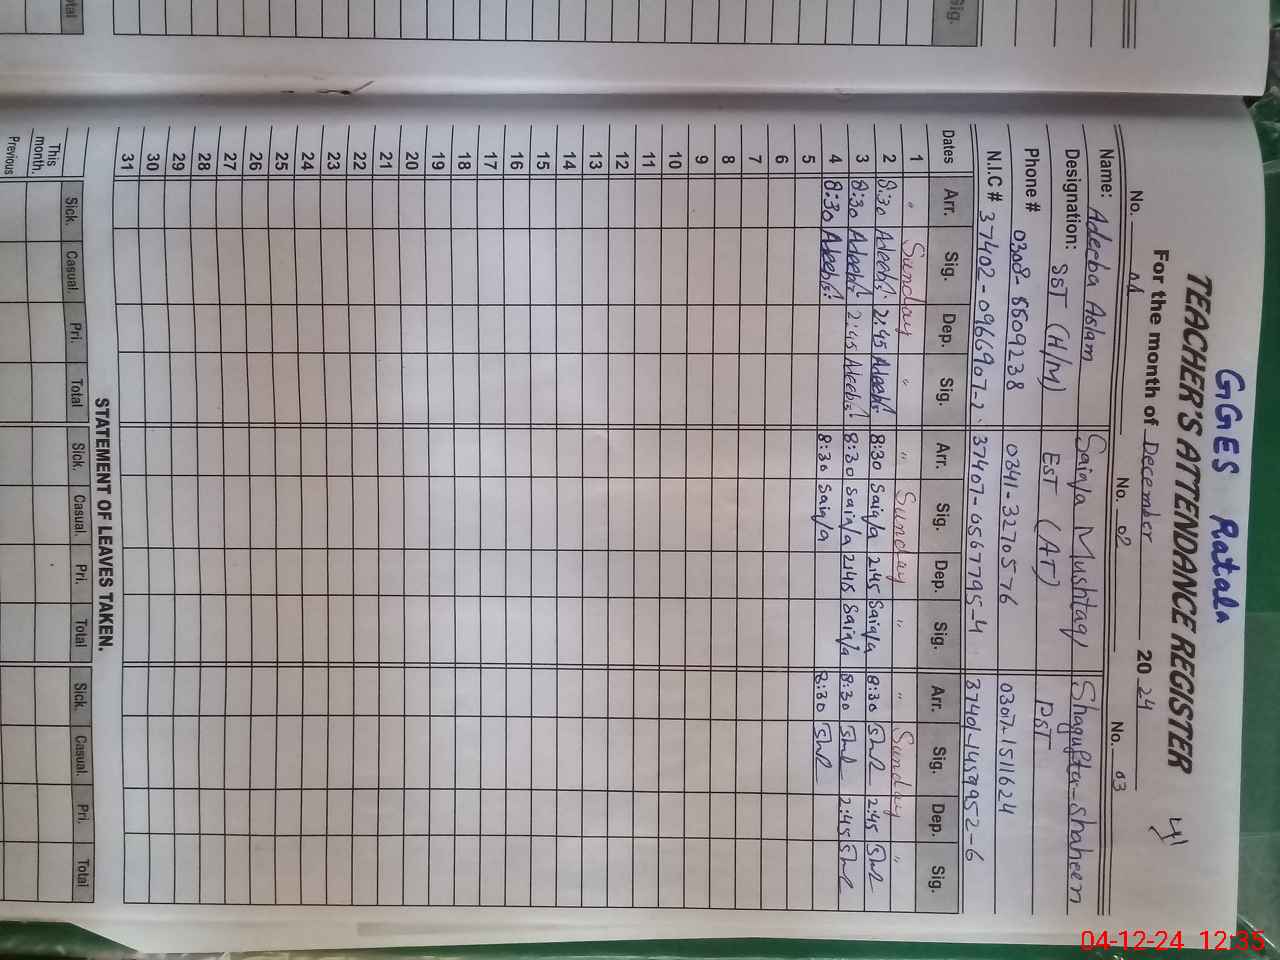 GGES Ratala
TEACHER'S ATTENDANCE REGISTER
For the month of December 2024
No. No. 02 No. 03
Name: Adeeba Aslam Saiqa Mushtaq Shagufta-Shaheen
Designation: SST (H/M) EST (AT) PST
Phone # 0308-5509238 0341-3270576 0307-1511624
N.I.C # 37402-0966907-2 37407-0567795-4 37401-1459952-6
Dates Arr. Sig. Dep. Sig. Arr. Sig. Dep. Sig. Arr. Sig. Dep. Sig.
1 " Sunday " " Sunday " " Sunday "
2 8:30 Adeeba 2:45 Adeeba 8:30 Saiqa 2:45 Saiqa 8:30 2:45
3 8:30 Adeeba 2:45 Adeeba 8:30 Saiqa 2:45 Saiqa 8:30 2:45
4 8:30 Adeeba 8:30 Saiqa 8:30
5
6
7
8
9
10
11
12
13
14
15
16
17
18
19
20
21
22
23
24
25
26
27
28
29
30
31
STATEMENT OF LEAVES TAKEN.
Sick. Casual. Pri. Total Sick. Casual. Pri. Total Sick. Casual. Pri. Total
This month.
Previous
Sig.
04-12-24 12:35